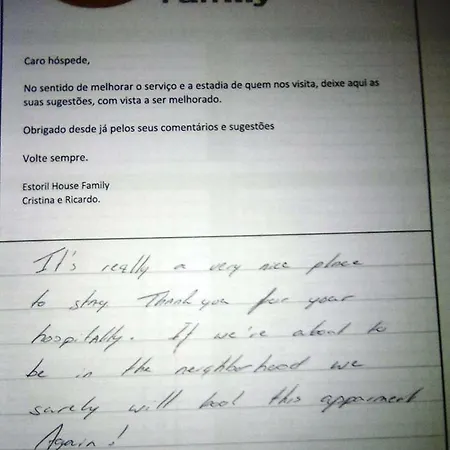 Family
Caro hóspede,
No sentido de melhorar o serviço e a estadia de quem nos visita, deixe aqui as
suas sugestões, com vista a ser melhorado.
Obrigado desde já pelos seus comentários e sugestões
Volte sempre.
Estoril House Family
Cristina e Ricardo.
It's really a very nice place
to stay Thank you for your
hospitally. If we're about to
be in the neighborhood we
surely will book this apparment
Again!